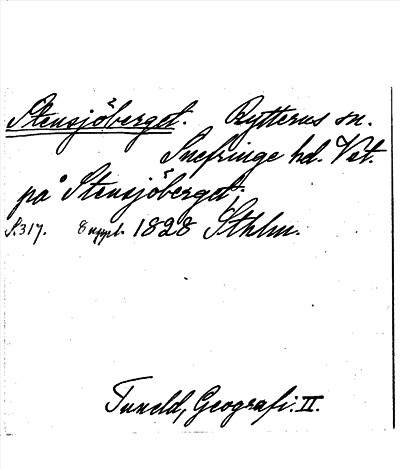 Stensjöberget. Rytterns sn.
Snefringe hd. Vstl.
på Stensjöberget.
S. 317. 8 uppl. 1828 Sthlm.
Tuneld, Geografi. II.